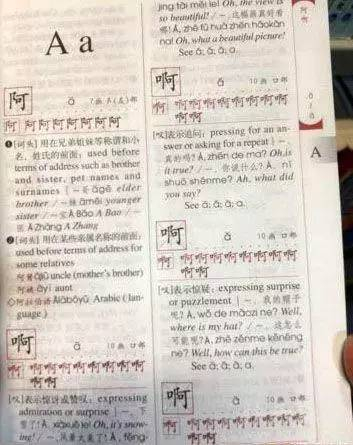 A a
阿 ā 7画 阝(左)部
阿 阿 阿 阿 阿 阿 阿
❶[词头]用在兄弟姐妹等称谓和小
名、姓氏的前面: used before
terms of address such as brother
and sister, pet names and
surnames | ~哥 āgē elder
brother / ~妹 āmèi younger
sister / ~宝 Ā Bǎo A Bao / ~
张 Ā Zhāng A Zhang
❷[词头]用在某些亲属名称的前面:
used before terms of address for
some relatives
阿舅 ājiù uncle (mother's brother)
阿姨 āyí aunt
◇阿拉伯语 Ālābóyǔ Arabic (lan-
guage)
啊 ā 10画 口部
啊 啊 啊 啊 啊 啊 啊 啊
啊 啊
[叹]表示惊讶或赞叹: expressing
admiration or surprise | ~, 下
雪了! Ā, xiàxuě le! Oh, it's snow-
ing! / ~, 风景太美了! Ā, fēng-
jǐng tài měi le! Oh, the view is
so beautiful! / ~, 这幅画真好看
哪! Ā, zhè fú huà zhēn hǎokàn
na! Oh, what a beautiful picture!
See á; ǎ; à; a.
啊 á 10画 口部
啊 啊 啊 啊 啊 啊 啊 啊
啊 啊
[叹]表示追问: pressing for an an-
swer or asking for a repeat | ~,
真的吗? Á, zhēn de ma? Oh, is
it true? / ~, 你说什么? Á, nǐ
shuō shénme? Ah, what did
you say?
See ā; ǎ; à; a.
啊 ǎ 10画 口部
啊 啊 啊 啊 啊 啊 啊 啊
啊 啊
[叹]表示惊疑: expressing surprise
or puzzlement | ~, 我的帽子
呢? Ǎ, wǒ de màozi ne? Well,
where is my hat? / ~, 这怎么
可能呢? Ǎ, zhè zěnme kěnéng
ne? Well, how can this be true?
See ā; á; à; a.
啊 à 10画 口部
啊 啊 啊 啊 啊 啊 啊 啊
阿
啊
A